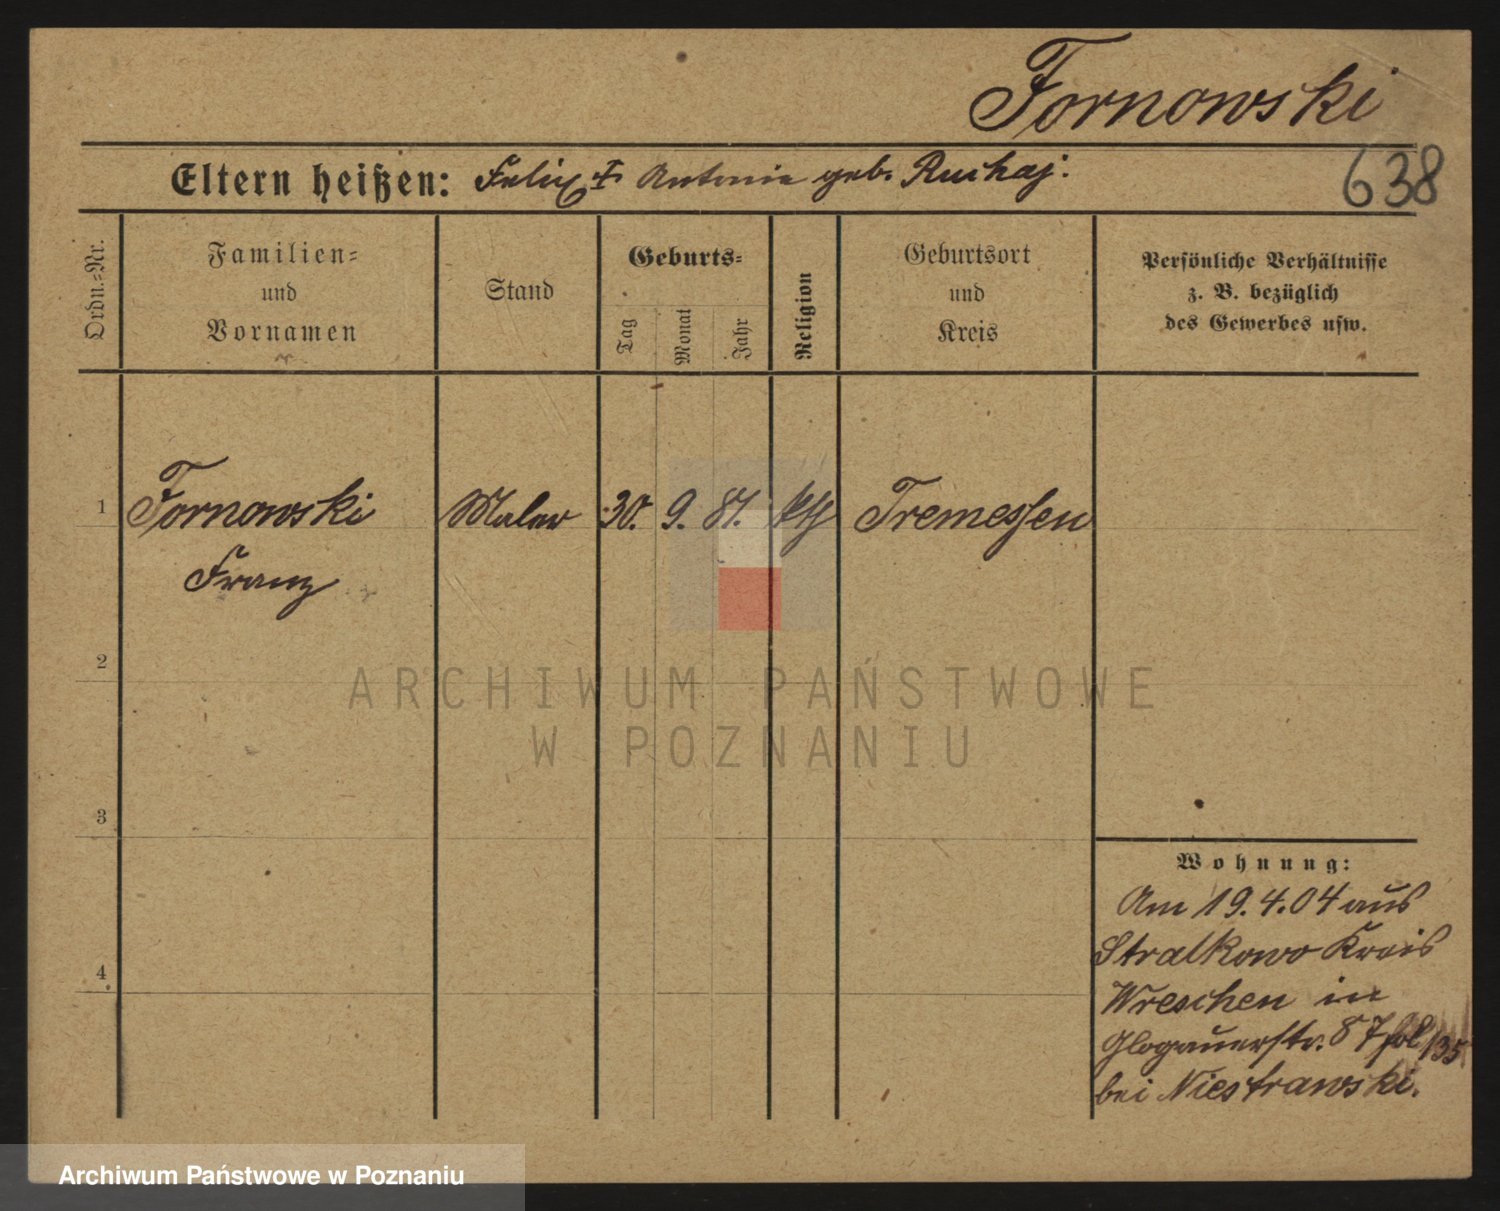 Fornowski
638
Eltern heißen: Felix † Antonie geb. Ruchaj.
Ordn.-Nr.
Familien-
und
Vornamen
Stand
Geburts-
Tag
Monat
Jahr
Religion
Geburtsort
und
Kreis
Persönliche Verhältnisse
z. B. bezüglich
des Gewerbes usw.
1 Fornowski Maler 30. 9. 81. kth Tremessen
Franz
2
3
4
Wohnung:
Am 19.4.04 aus
Stralkowo Kreis
Wreschen in
Glogauerstr. 87 fol 135
bei Niestrawski.
ARCHIWUM PAŃSTWOWE
W POZNANIU
Archiwum Państwowe w Poznaniu